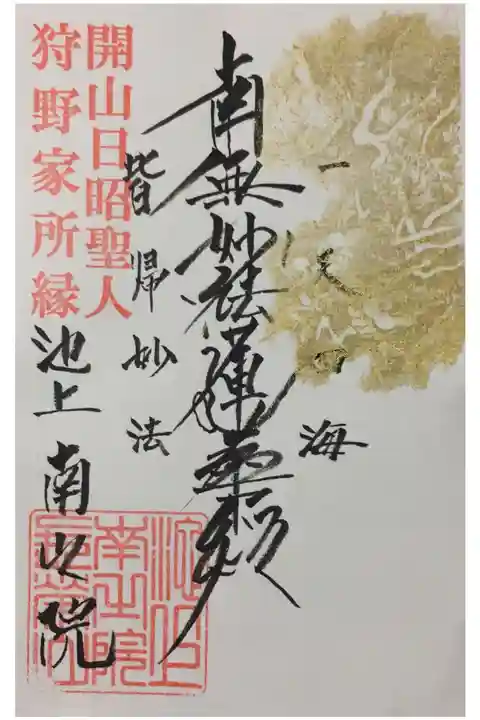 一天四海
南無妙法蓮華経
皆帰妙法
開山日昭聖人
狩野家所縁
池上 南之院